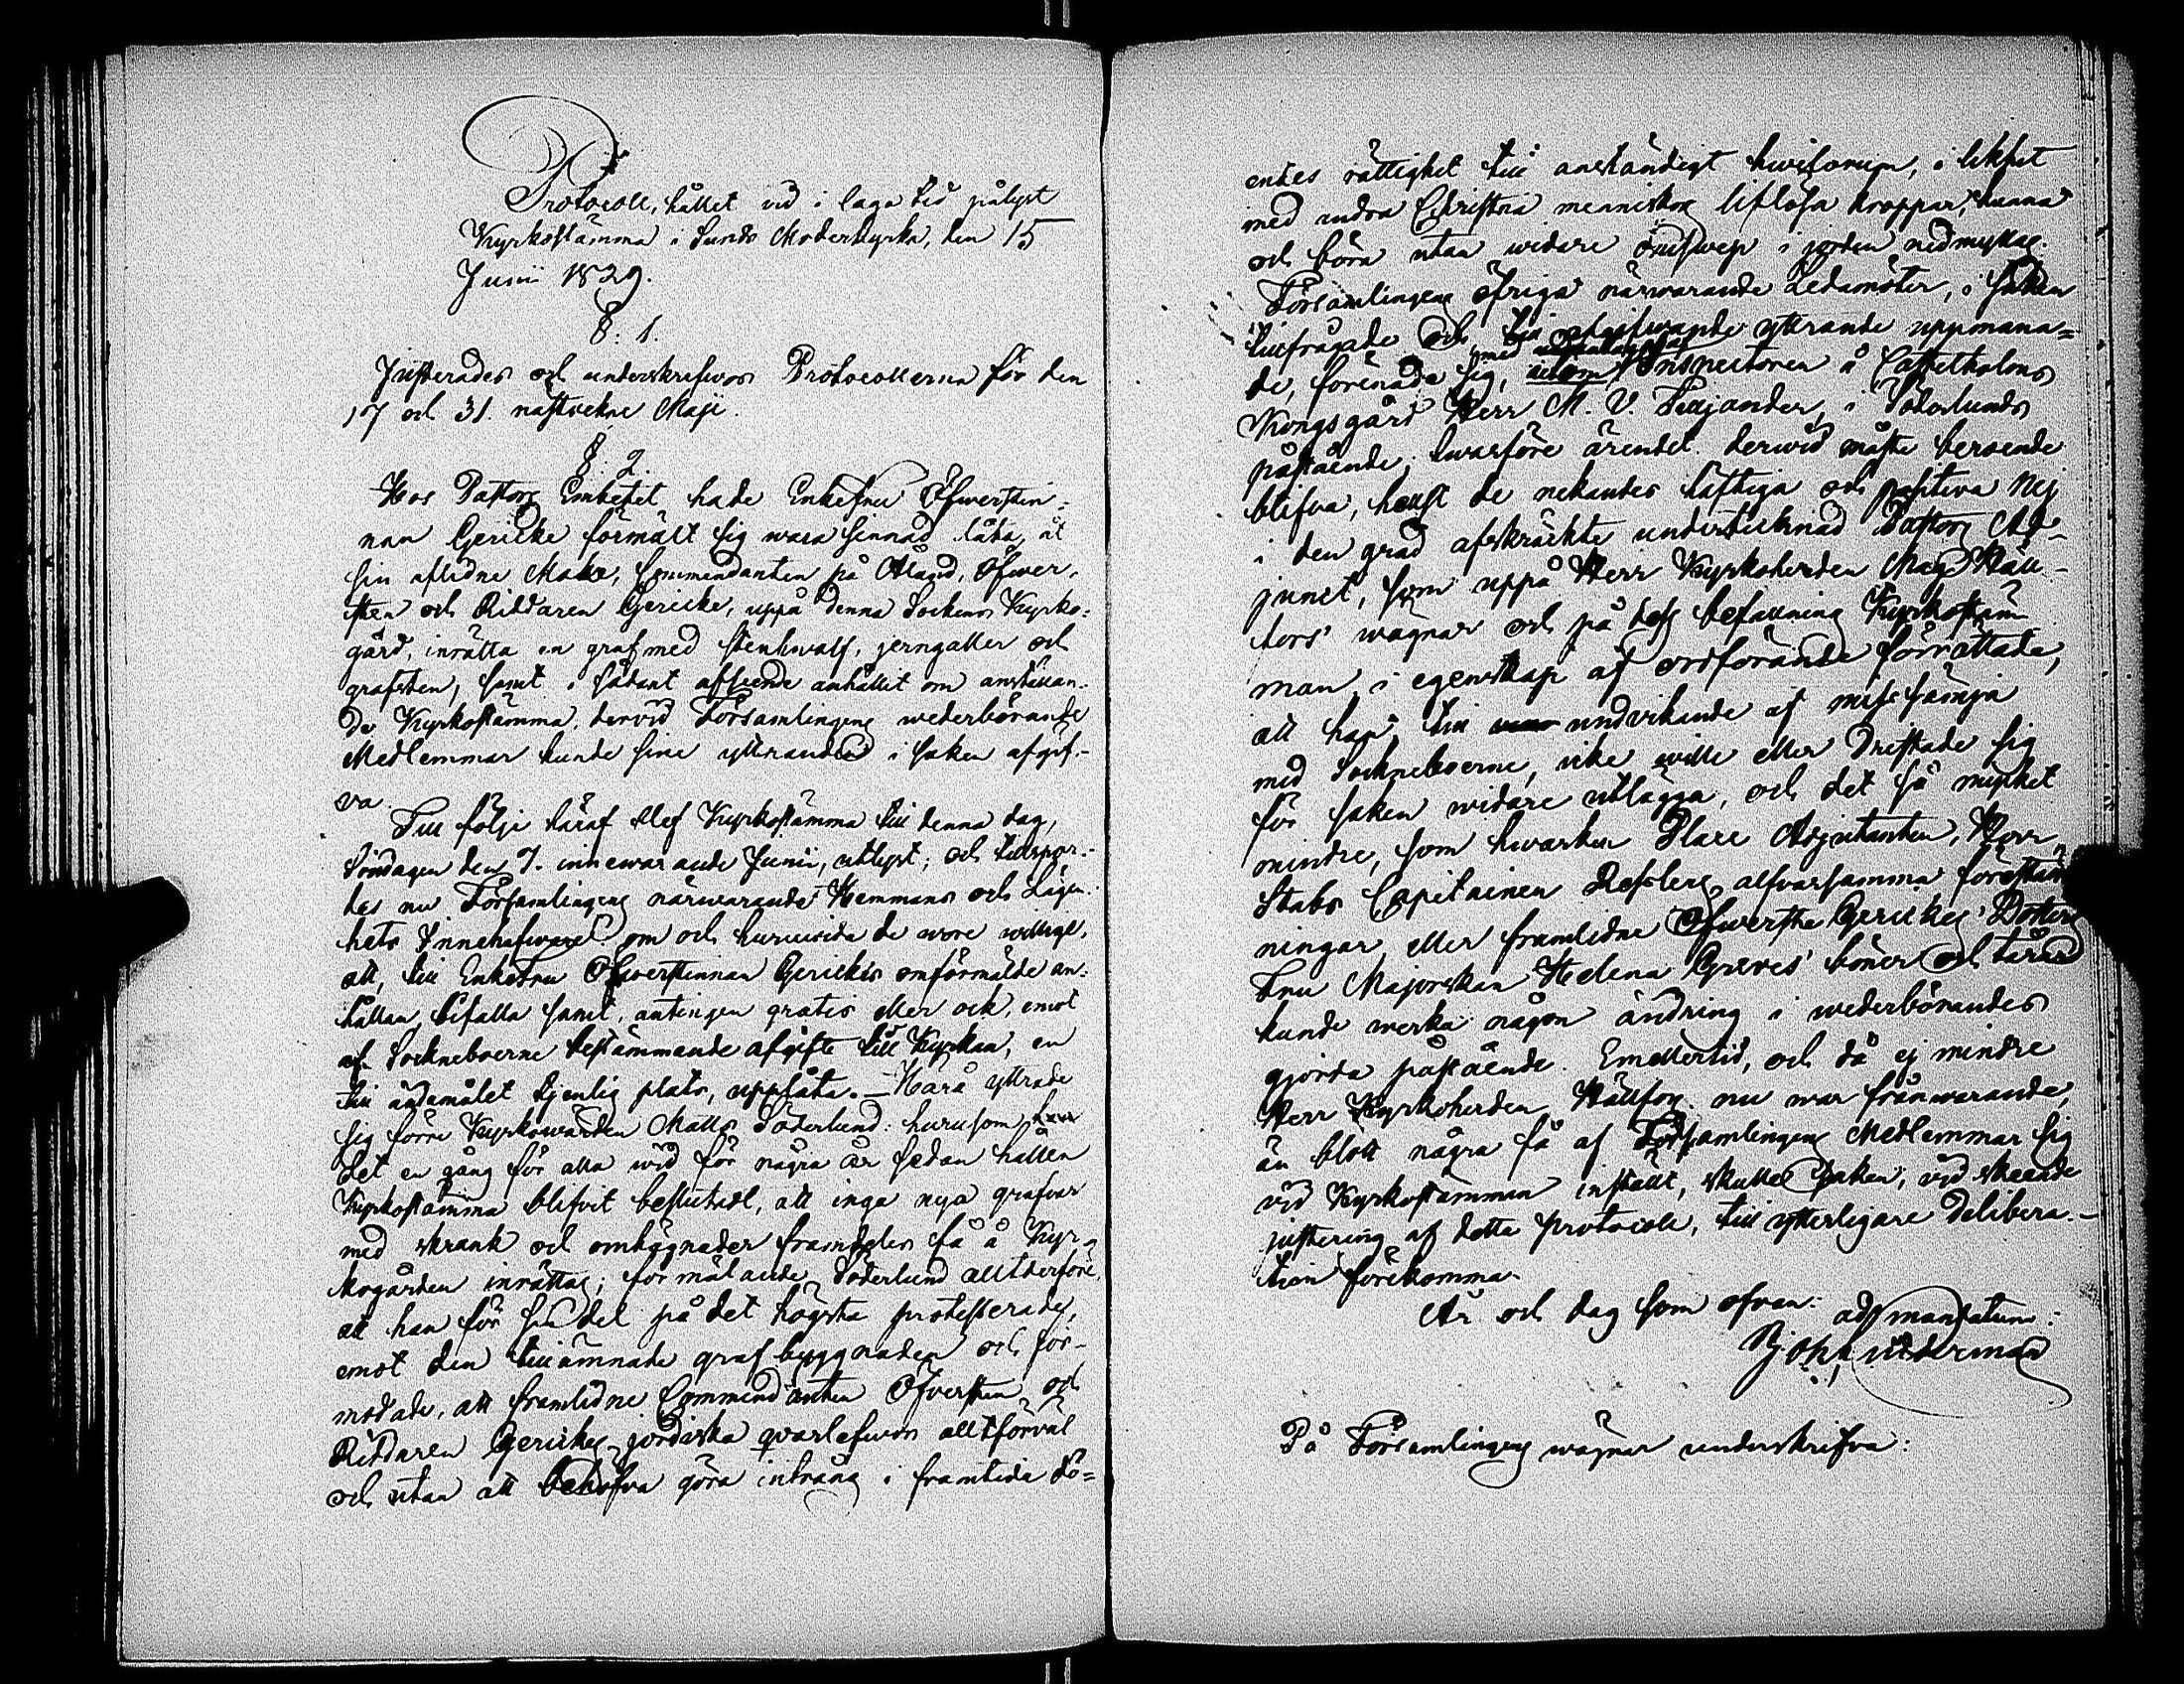 Protocoll, hållet vid i laga tid pålyst
Kyrkostämma i Sunds Moderkyrka, den 15
Junii 1829.
§. 1.
Justerades och underskrefvos Protocollerna för den
17 och 31. nästvekne Maji.
§. 2.
Hos Pastors Embetet hade Enkefru Öfwerstin-
nan Gericke förmält sig wara sinnad låta, åt
sin aflidne Make, Commendanten på Åland, Öfwer-
sten och Riddaren Gericke, uppå denna Sockens Kyrko-
gård, inrätta en graf med stenhwalf, jerngaller och
grafsten, samt i sådant afseende anhållit om anställan-
de Kyrkostämma, dervid Församlingens wederbörande
Medlemmar kunde sine yttranden i saken afgif-
va.
Till följe häraf blef Kyrkostämma till denna dag,
Söndagen den 7. innewarande Junii, utlyst; och tillspor-
des nu Församlingens närwarande Hemmans och Lägen-
hets Innehafware om och huruwida de wore willige,
att, till Enkefru Öfwerstinnan Gerickes omförmälde an-
hållan bifalla samt, antingen gratis eller ock, emot
af Sockneboerne bestämmande afgifte till Kyrkan, en
till ändamålet tjenlig plats, upplåta. — Härå yttrade
sig förre Kyrkowärden Matts Söderlund: hurusom
det en gång för alla wid för några år sedan hållen
Kyrkostämma blifvit beslutadt, att inga nya grafvar
med skrank och omhägnader framdeles få å Kyr-
kogården inrättas; förmälande Söderlund alltderföre,
att han för sin del på det högsta protesterade,
emot den tillämnade grafbyggnaden och för-
modade, att framledne Commendanten Öfversten och
Riddaren Gerickes jordiska qvarlefwor allt förväl
och utan att behöfva göra intrång i framtida dö-
endes rättighet till anständigt hwilorum, i likhet
med andra Christna menniskors liflösa kroppar, kunna
och böra utan widare i jorden nedmyllas.
Församlingens öfriga närwarande Ledamöter, i saken
tillfrågade och till afgifwande yttrande uppmana-
de, förenade sig, med Inspectoren å Castelholms
Kongsgård Herr M. V. Tilljander, i Söderlunds
påstående, hwarföre ärendet derwid måste beroende
blifva, helst de nekandes häftiga och positiva Nej
i den grad afskräckte undertecknad Pastors Ad-
junct, som uppå Herr Kyrkoherden Mag. Häll-
fors' wägnar och på dess befallning Kyrkostäm-
man i egenskap af ordförande förrättade,
att han, till undvikande af missämja
med Sockneboerne, icke wille eller dristade sig
för saken widare utlägga, och det så mycket
mindre, som hwarken Place Adjutanten, Herr
Stabs Capitainen Resslers alfvarsamma föreställ-
ningar eller framledne Öfwerste Gerickes Dotters
Fru Majorskan Helena Greves' böner och tårar
kunde werka någon ändring i wederbörandes
gjorda påstående. Emellertid, och då ej mindre
Herr Kyrkoherden Hällfors nu war frånwarande,
än blott några få af Församlingens Medlemmar sig
vid Kyrkostämman inställt, skulle saken, vid skeende
justering af detta Protocoll, till ytterligare Delibera-
tion förekomma.
År och dag som ofvan: ad mandatum:
På Församlingens wägnar underskrifva: